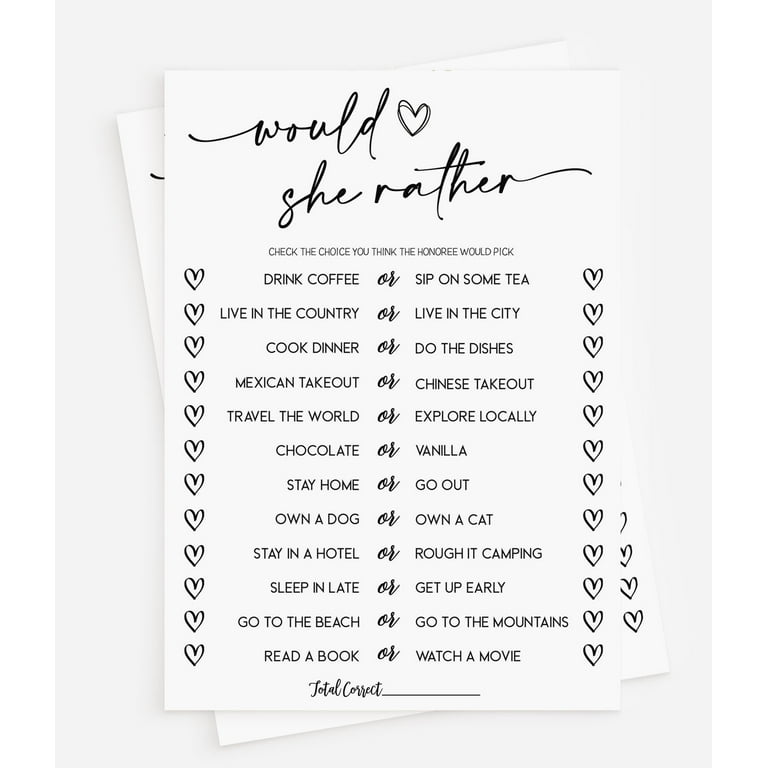 would
she rather
CHECK THE CHOICE YOU THINK THE HONOREE WOULD PICK
DRINK COFFEE or SIP ON SOME TEA
LIVE IN THE COUNTRY or LIVE IN THE CITY
COOK DINNER or DO THE DISHES
MEXICAN TAKEOUT or CHINESE TAKEOUT
TRAVEL THE WORLD or EXPLORE LOCALLY
CHOCOLATE or VANILLA
STAY HOME or GO OUT
OWN A DOG or OWN A CAT
STAY IN A HOTEL or ROUGH IT CAMPING
SLEEP IN LATE or GET UP EARLY
GO TO THE BEACH or GO TO THE MOUNTAINS
READ A BOOK or WATCH A MOVIE
Total Correct